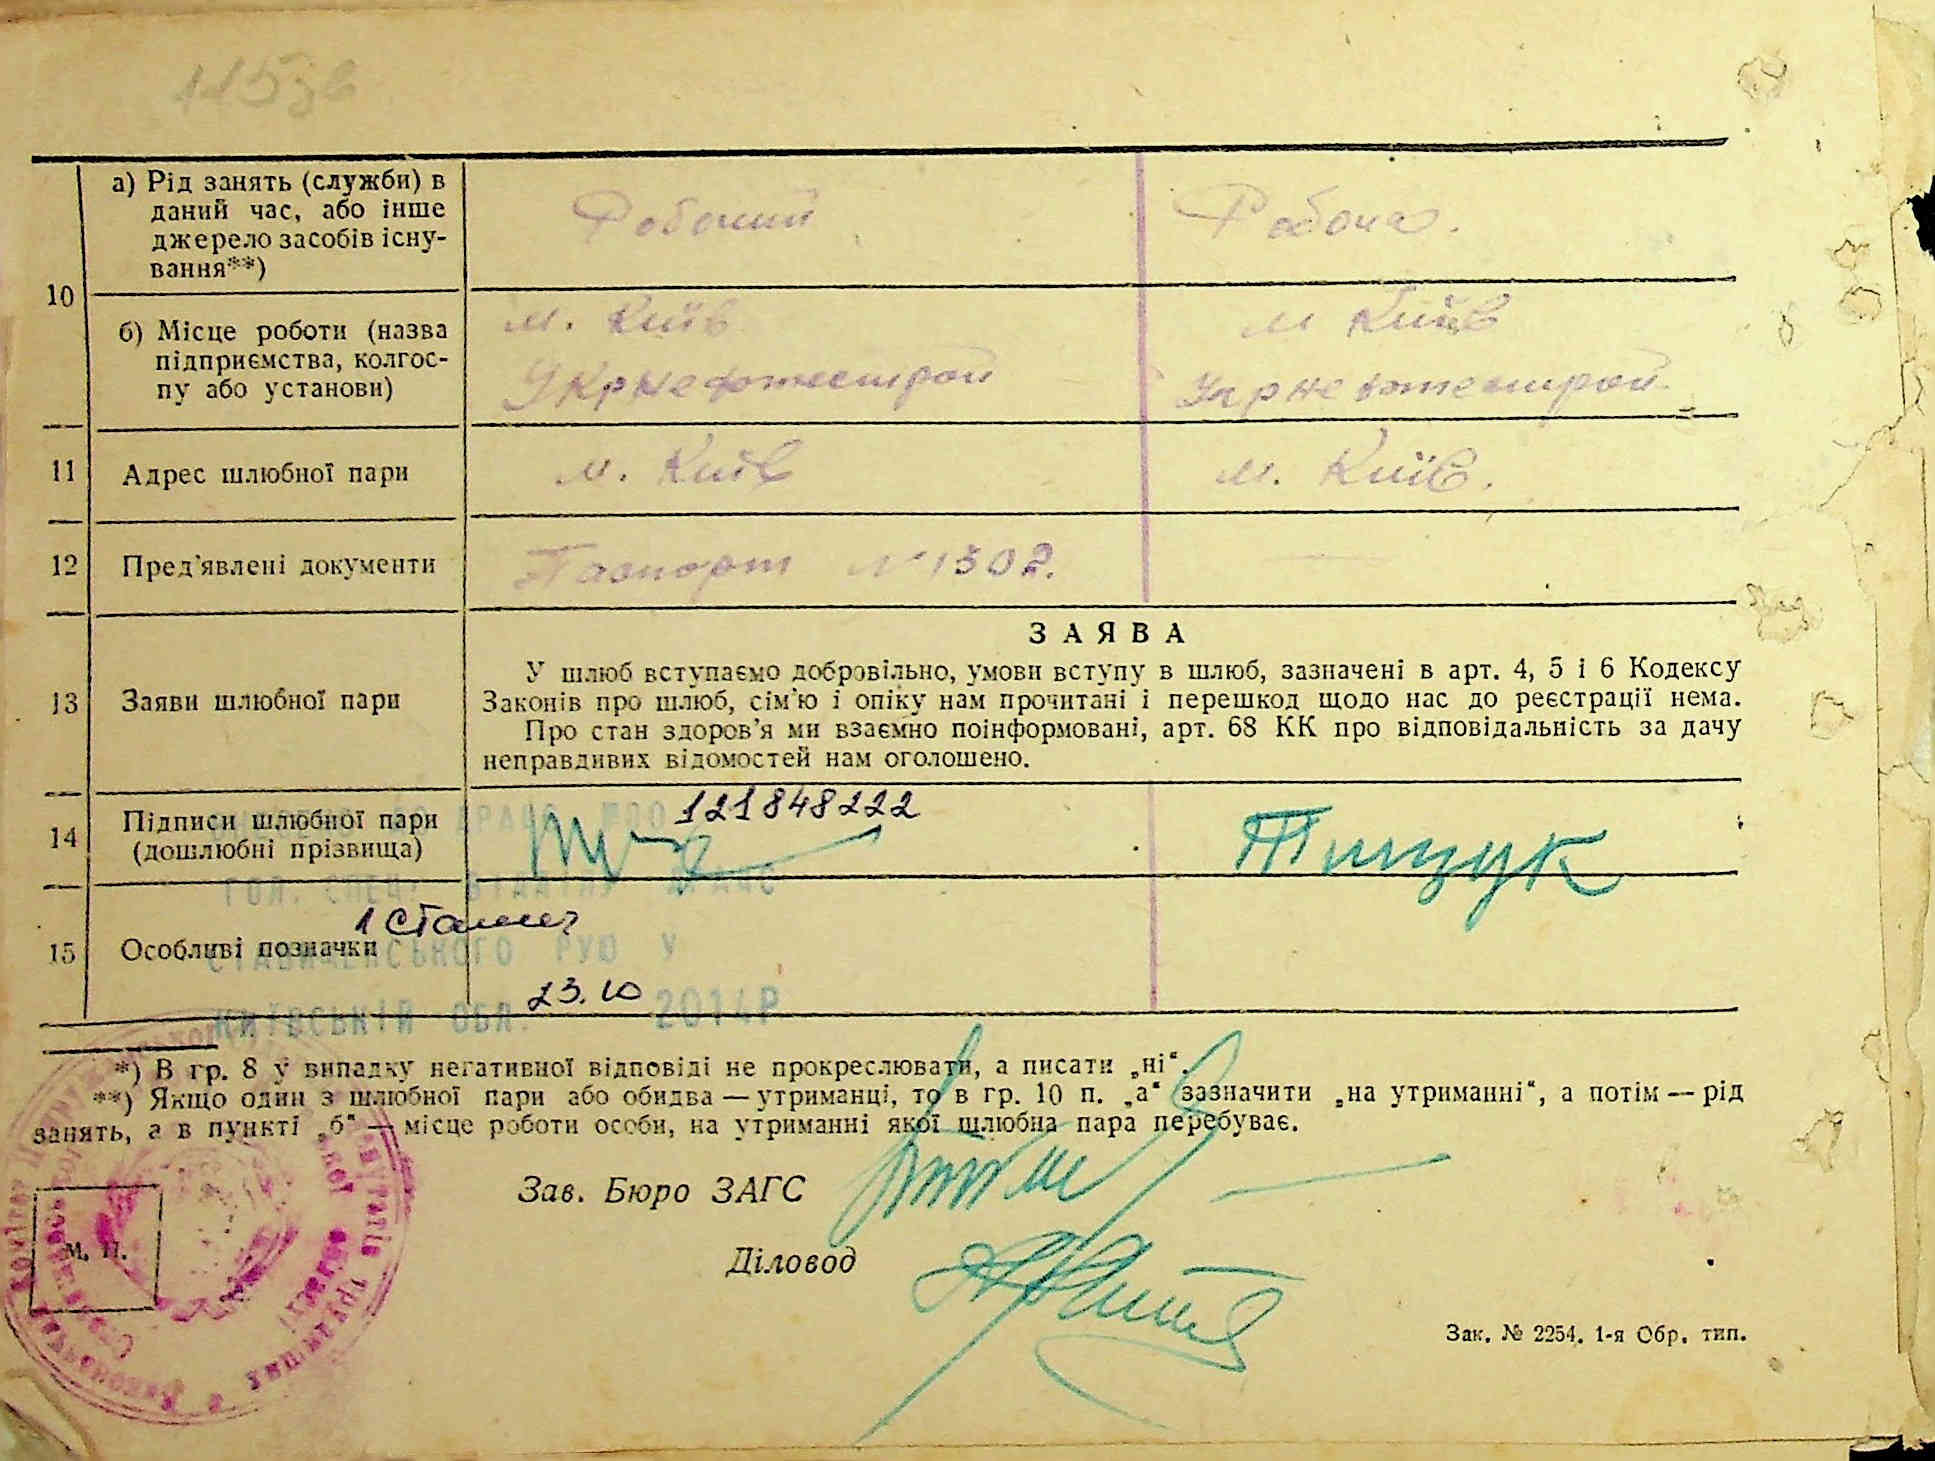 115зв
10
а) Рід занять (служби) в
даний час, або інше
джерело засобів існу-
вання**)
Робочий
Робоча.
б) Місце роботи (назва
підприємства, колгос-
пу або установи)
м. Київ
Укрнефтестрой
м Київ
Укрнефтестрой
11
Адрес шлюбної пари
м. Київ
м. Київ.
12
Пред'явлені документи
Паспорт №1302.
13
Заяви шлюбної пари
ЗАЯВА
У шлюб вступаємо добровільно, умови вступу в шлюб, зазначені в арт. 4, 5 і 6 Кодексу
Законів про шлюб, сім'ю і опіку нам прочитані і перешкод щодо нас до реєстрації нема.
Про стан здоров'я ми взаємно поінформовані, арт. 68 КК про відповідальність за дачу
неправдивих відомостей нам оголошено.
14
Підписи шлюбної пари
(дошлюбні прізвища)
121848222
Тищук
ГОЛ. СПЕЦ. ВІДДІЛУ ДРАЦС
15
Особливі позначки
СТАВИЩЕНСЬКОГО РУЮ У
23.10
КИЇВСЬКІЙ ОБЛ. 2014Р
*) В гр. 8 у випадку негативної відповіді не прокреслювати, а писати „ні“.
**) Якщо один з шлюбної пари або обидва — утриманці, то в гр. 10 п. „а“ зазначити „на утриманні“, а потім — рід
занять, а в пункті „б“ — місце роботи особи, на утриманні якої шлюбна пара перебуває.
Зав. Бюро ЗАГС
М. П.
Діловод
Зак. № 2254. 1-я Обр. тип.